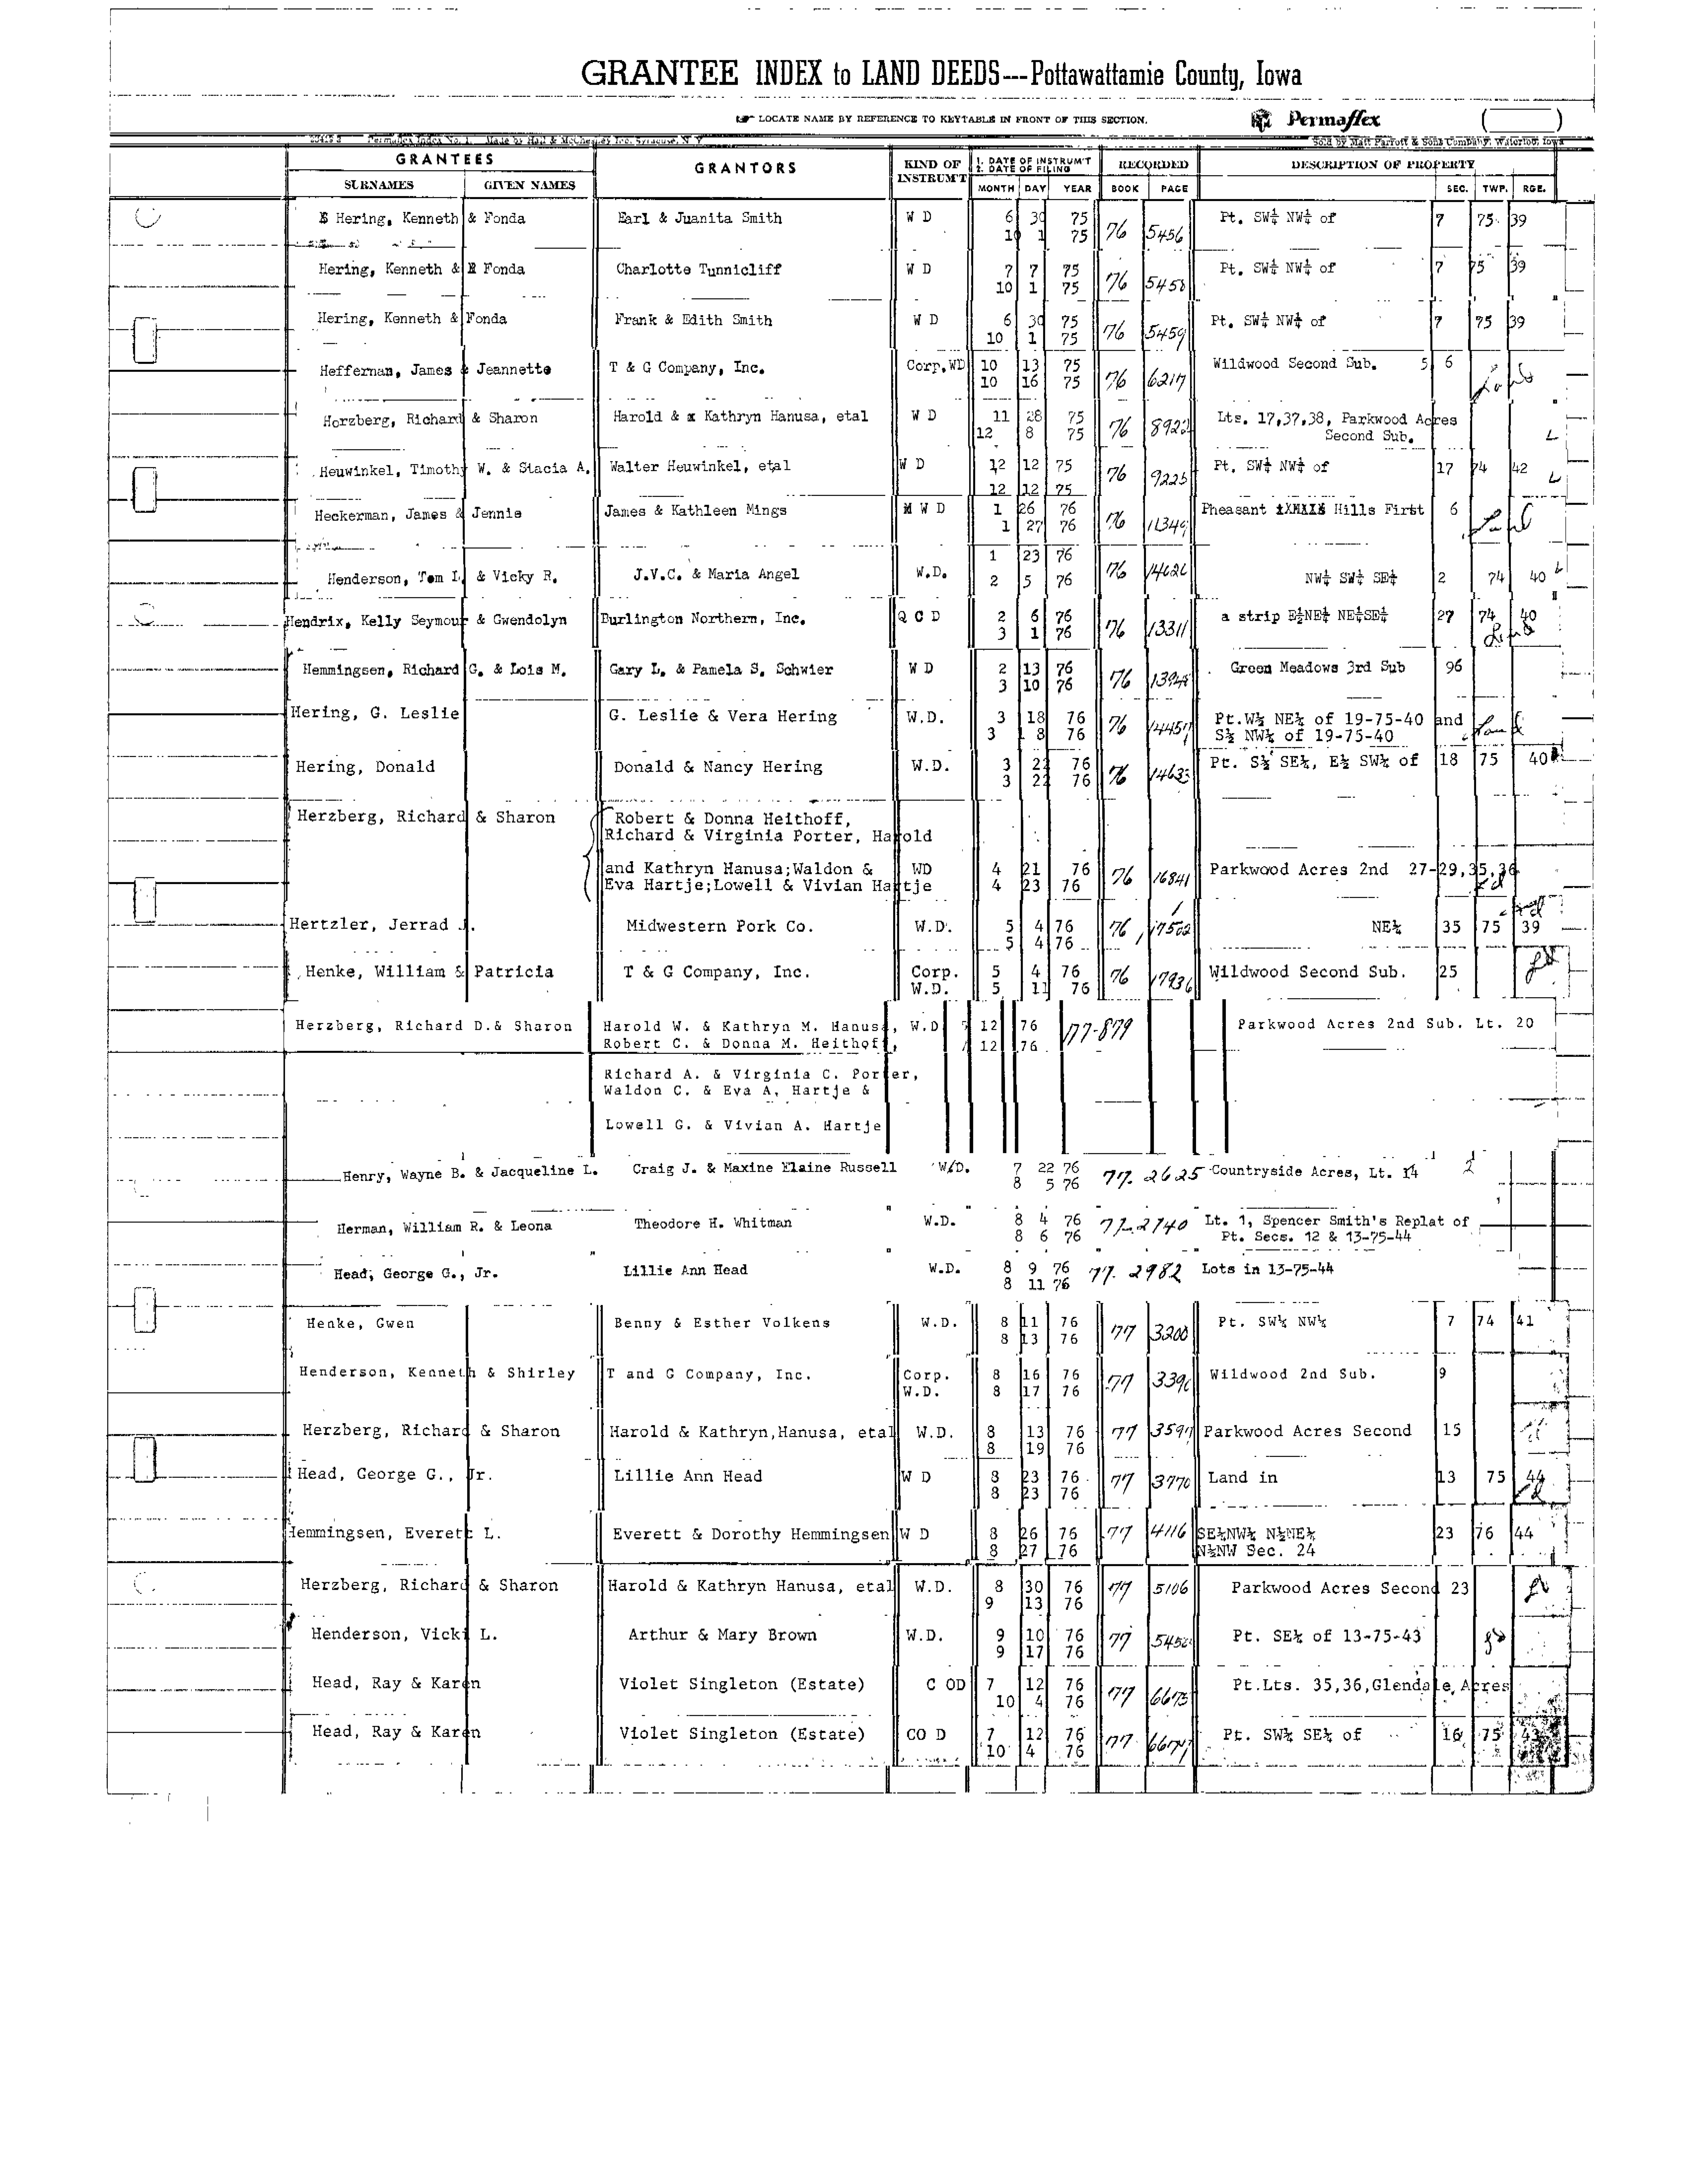 GRANTEE INDEX to LAND DEEDS---Pottawattamie County, Iowa
LOCATE NAME BY REFERENCE TO KEYTABLE IN FRONT OF THIS SECTION.
Permaflex
Sold by Matt Parrott & Sons Company, Waterloo, Iowa
GRANTEES GRANTORS KIND OF INSTRUM'T 1. DATE OF INSTRUM'T 2. DATE OF FILING RECORDED DESCRIPTION OF PROPERTY
SURNAMES GIVEN NAMES MONTH DAY YEAR BOOK PAGE SEC. TWP. RGE.
Hering, Kenneth & Fonda Earl & Juanita Smith W D 6 30 75 76 5456 Pt. SW¼ NW¼ of 7 75 39
10 1 75
Hering, Kenneth & Fonda Charlotte Tunnicliff W D 7 7 75 76 5458 Pt. SW¼ NW¼ of 7 75 39
10 1 75
Hering, Kenneth & Fonda Frank & Edith Smith W D 6 30 75 76 5459 Pt. SW¼ NW¼ of 7 75 39
10 1 75
Heffernan, James & Jeannette T & G Company, Inc. Corp.WD 10 13 75 76 6217 Wildwood Second Sub. 5 6
10 16 75
Herzberg, Richard & Sharon Harold & x Kathryn Hanusa, etal W D 11 28 75 76 8922 Lts. 17,37,38, Parkwood Acres
12 8 75 Second Sub.
Heuwinkel, Timothy W. & Stacia A. Walter Heuwinkel, etal W D 12 12 75 76 9225 Pt. SW¼ NW¼ of 17 74 42
12 12 75
Heckerman, James & Jennie James & Kathleen Mings W D 1 26 76 76 11349 Pheasant Hills First 6
1 27 76
Henderson, Tom L & Vicky R. J.V.C. & Maria Angel W.D. 1 23 76 76 14626 NW¼ SW¼ SE¼ 2 74 40
2 5 76
Hendrix, Kelly Seymour & Gwendolyn Burlington Northern, Inc. Q C D 2 6 76 76 13311 a strip E½NE¼ NE¼SE¼ 27 74 40
3 1 76
Hemmingsen, Richard G. & Lois M. Gary L. & Pamela S. Schwier W D 2 13 76 76 13948 Green Meadows 3rd Sub 96
3 10 76
Hering, G. Leslie G. Leslie & Vera Hering W.D. 3 18 76 76 14457 Pt.W½ NE¼ of 19-75-40 and
3 18 76 S½ NW¼ of 19-75-40
Hering, Donald Donald & Nancy Hering W.D. 3 22 76 76 14633 Pt. S½ SE¼, E½ SW¼ of 18 75 40
3 22 76
Herzberg, Richard & Sharon Robert & Donna Heithoff,
Richard & Virginia Porter, Harold
and Kathryn Hanusa;Waldon & WD 4 21 76 76 16841 Parkwood Acres 2nd 27-29,35,36
Eva Hartje;Lowell & Vivian Hartje 4 23 76
Hertzler, Jerrad J. Midwestern Pork Co. W.D. 5 4 76 76 17502 NE¼ 35 75 39
5 4 76
Henke, William & Patricia T & G Company, Inc. Corp. 5 4 76 76 17936 Wildwood Second Sub. 25
W.D. 5 11 76
Herzberg, Richard D.& Sharon Harold W. & Kathryn M. Hanusa, W.D 12 76 77-879 Parkwood Acres 2nd Sub. Lt. 20
Robert C. & Donna M. Heithoff, 12 76
Richard A. & Virginia C. Porter,
Waldon C. & Eva A. Hartje &
Lowell G. & Vivian A. Hartje
Henry, Wayne B. & Jacqueline L. Craig J. & Maxine Elaine Russell W.D. 7 22 76 77. 2625 Countryside Acres, Lt. 14
8 5 76
Herman, William R. & Leona Theodore H. Whitman W.D. 8 4 76 77-2740 Lt. 1, Spencer Smith's Replat of
8 6 76 Pt. Secs. 12 & 13-75-44
Head, George G., Jr. Lillie Ann Head W.D. 8 9 76 77. 2982 Lots in 13-75-44
8 11 76
Henke, Gwen Benny & Esther Volkens W.D. 8 11 76 77 3200 Pt. SW¼ NW¼ 7 74 41
8 13 76
Henderson, Kenneth & Shirley T and G Company, Inc. Corp. 8 16 76 77 3396 Wildwood 2nd Sub. 9
W.D. 8 17 76
Herzberg, Richard & Sharon Harold & Kathryn,Hanusa, etal W.D. 8 13 76 77 3597 Parkwood Acres Second 15
8 19 76
Head, George G., Jr. Lillie Ann Head W D 8 23 76 77 3770 Land in 13 75 44
8 23 76
Hemmingsen, Everett L. Everett & Dorothy Hemmingsen W D 8 26 76 77 4116 SE¼NW¼ N½NE¼ 23 76 44
8 27 76 N½NW Sec. 24
Herzberg, Richard & Sharon Harold & Kathryn Hanusa, etal W.D. 8 30 76 77 5106 Parkwood Acres Second 23
9 13 76
Henderson, Vicki L. Arthur & Mary Brown W.D. 9 10 76 77 Pt. SE¼ of 13-75-43
9 17 76
Head, Ray & Karen Violet Singleton (Estate) C OD 7 12 76 77 6673 Pt.Lts. 35,36,Glendale Acres
10 4 76
Head, Ray & Karen Violet Singleton (Estate) CO D 7 12 76 77 6674 Pt. SW¼ SE¼ of 16 75 43
10 4 76